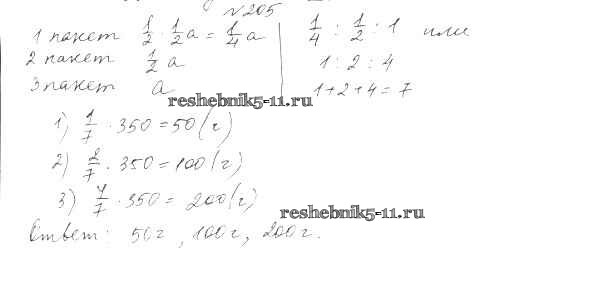 №205
1 пакет 1/2 · 1/2 a = 1/4 a
2 пакет 1/2 a
3 пакет a
1/4 : 1/2 : 1 или
1 : 2 : 4
1+2+4=7
reshebnik5-11.ru
1) 1/7 · 350 = 50 (г)
2) 2/7 · 350 = 100 (г)
3) 4/7 · 350 = 200 (г)
reshebnik5-11.ru
Ответ: 50г, 100г, 200г.